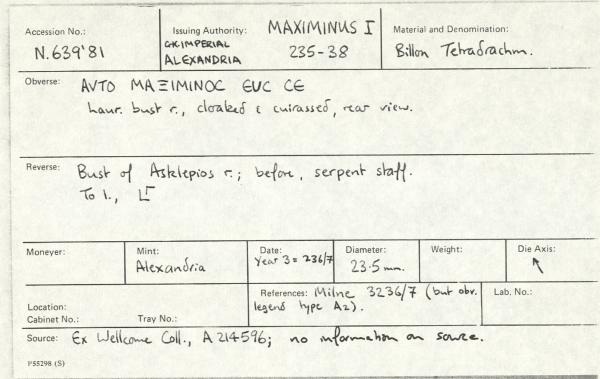 Accession No.:
N.639'81
Issuing Authority:
GK IMPERIAL
ALEXANDRIA
MAXIMINUS I
235-38
Material and Denomination:
Billon Tetradrachm.
Obverse: AVTO MAΞIMINOC EUC CE
Laur. bust r., cloaked & cuirassed, rear view.
Reverse: Bust of Asklepios r.; before, serpent staff.
To l., LΓ
Moneyer:
Mint:
Alexandria
Date:
Year 3 = 236/7
Diameter:
23.5 mm.
Weight:
Die Axis:
↖
Location:
Cabinet No.: Tray No.:
References: Milne 3236/7 (but obv.
legend type A2).
Lab. No.:
Source: Ex Wellcome Coll., A 214596; no information on source.
P55298 (S)